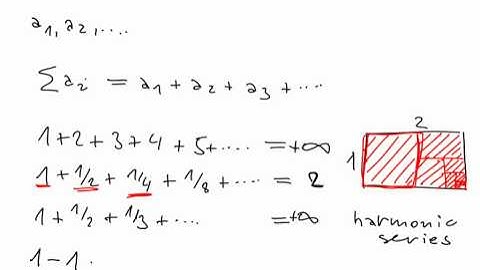 a₁, a₂, ....
∑aᵢ = a₁ + a₂ + a₃ + ....
1+2+3+4+5+.... = +∞
1 + 1/2 + 1/4 + 1/8 + .... = 2
2
1
1 + 1/2 + 1/3 + .... = +∞
harmonic
series
1 - 1 .